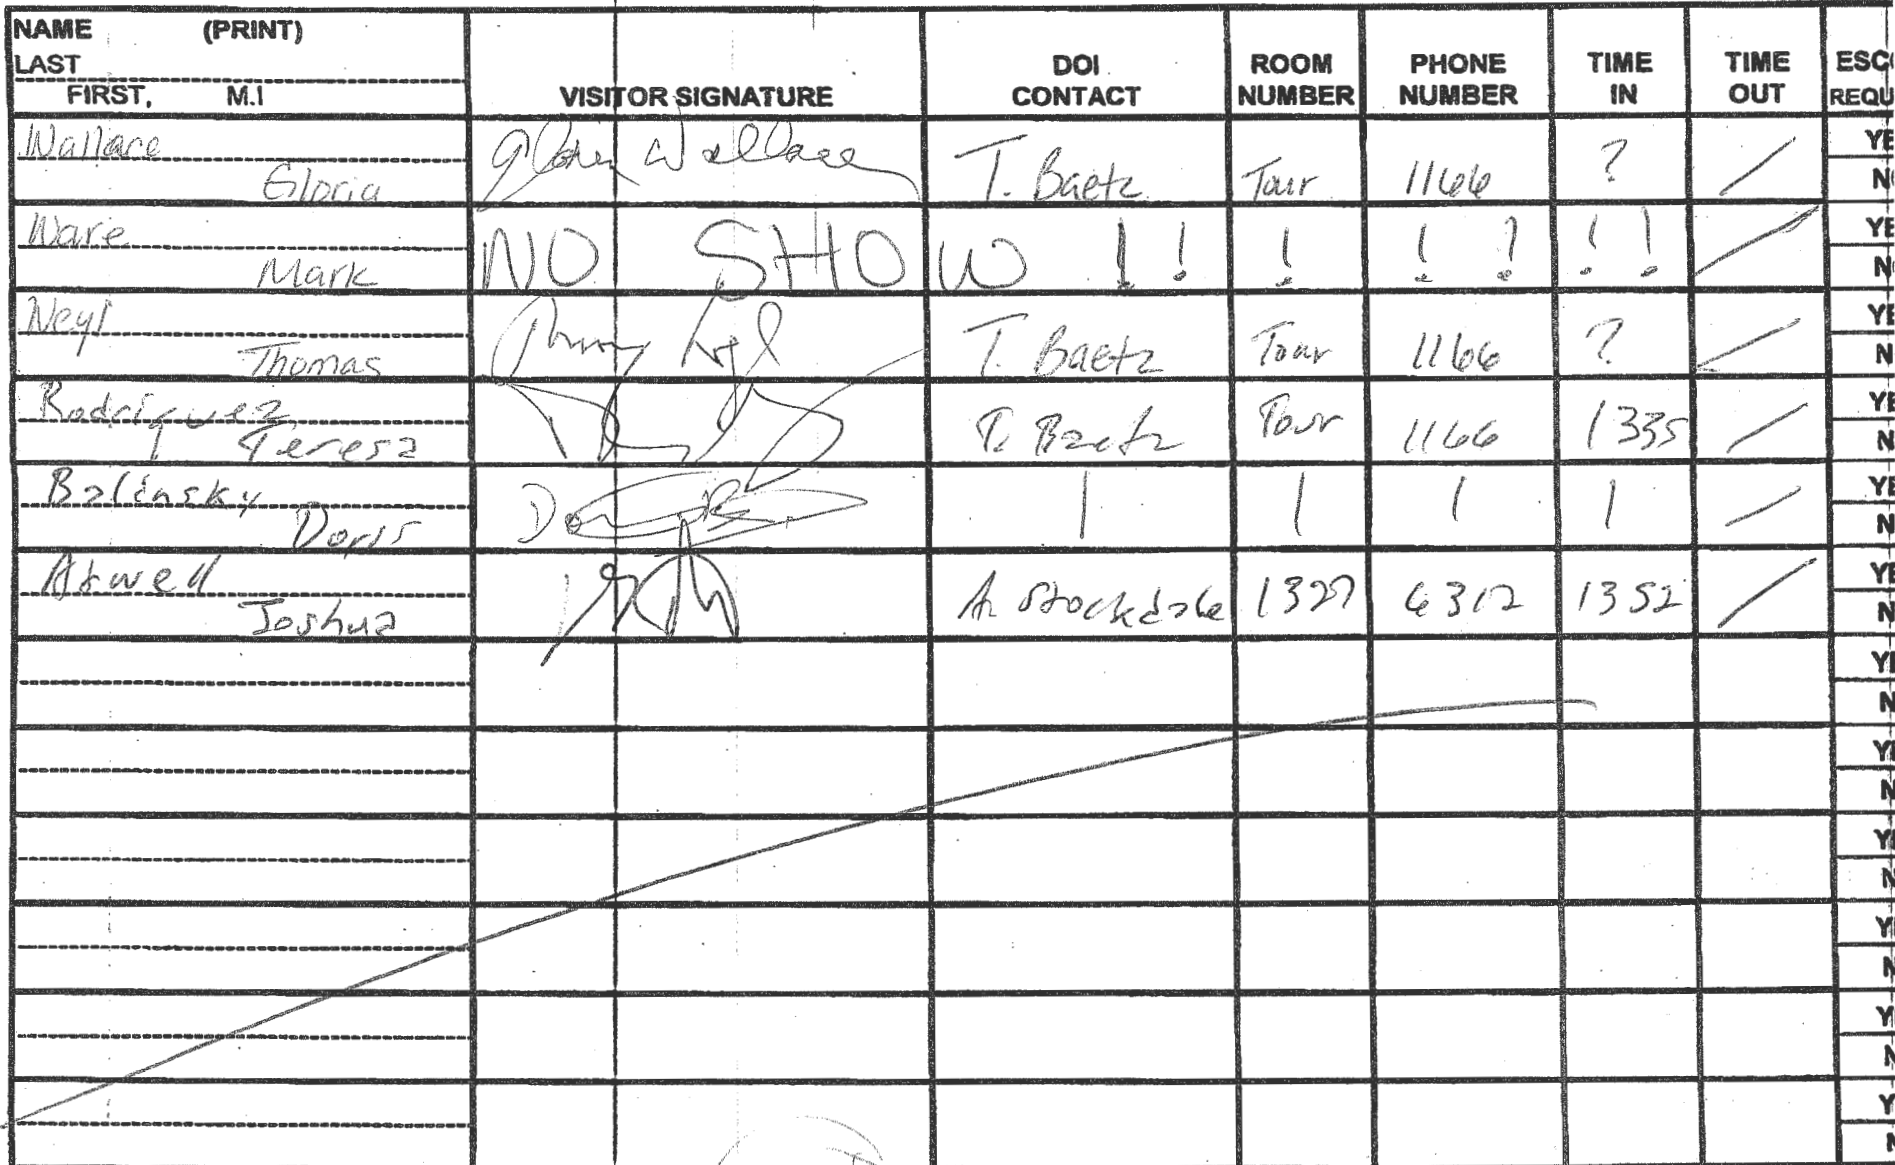 NAME (PRINT)
LAST
FIRST, M.I
VISITOR SIGNATURE
DOI CONTACT
ROOM NUMBER
PHONE NUMBER
TIME IN
TIME OUT
ESC
REQU
Wallace
Gloria Gloria Wallace T. Baetz Tour 1166 ? / YE N
Ware
Mark NO SHOW !! ! ! ? !! / YE N
Neyl
Thomas T. Baetz Tour 1166 ? / YE N
Rodriquez
Teresa T. Baetz Tour 1166 1335 / YE N
Balinsky
Doris | | | | / YE N
Atwell
Joshua A. Stockdale 1327 6312 1352 / YE N
YE
N
YE
N
Y
N
Y
N
Y
N
Y
N